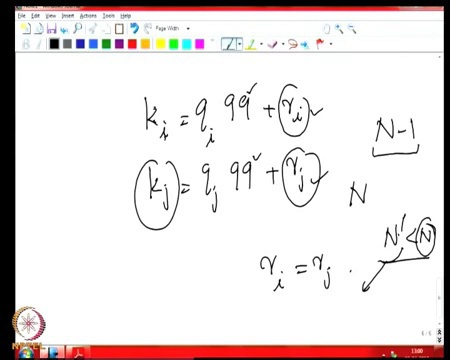 File Edit View Insert Actions Tools Help
Page Width
k_i = q_i 99 + r_i
N-1
k_j = q_j 99 + r_j
N
N' < N
r_i = r_j .
6/6
NPTEL
13:00